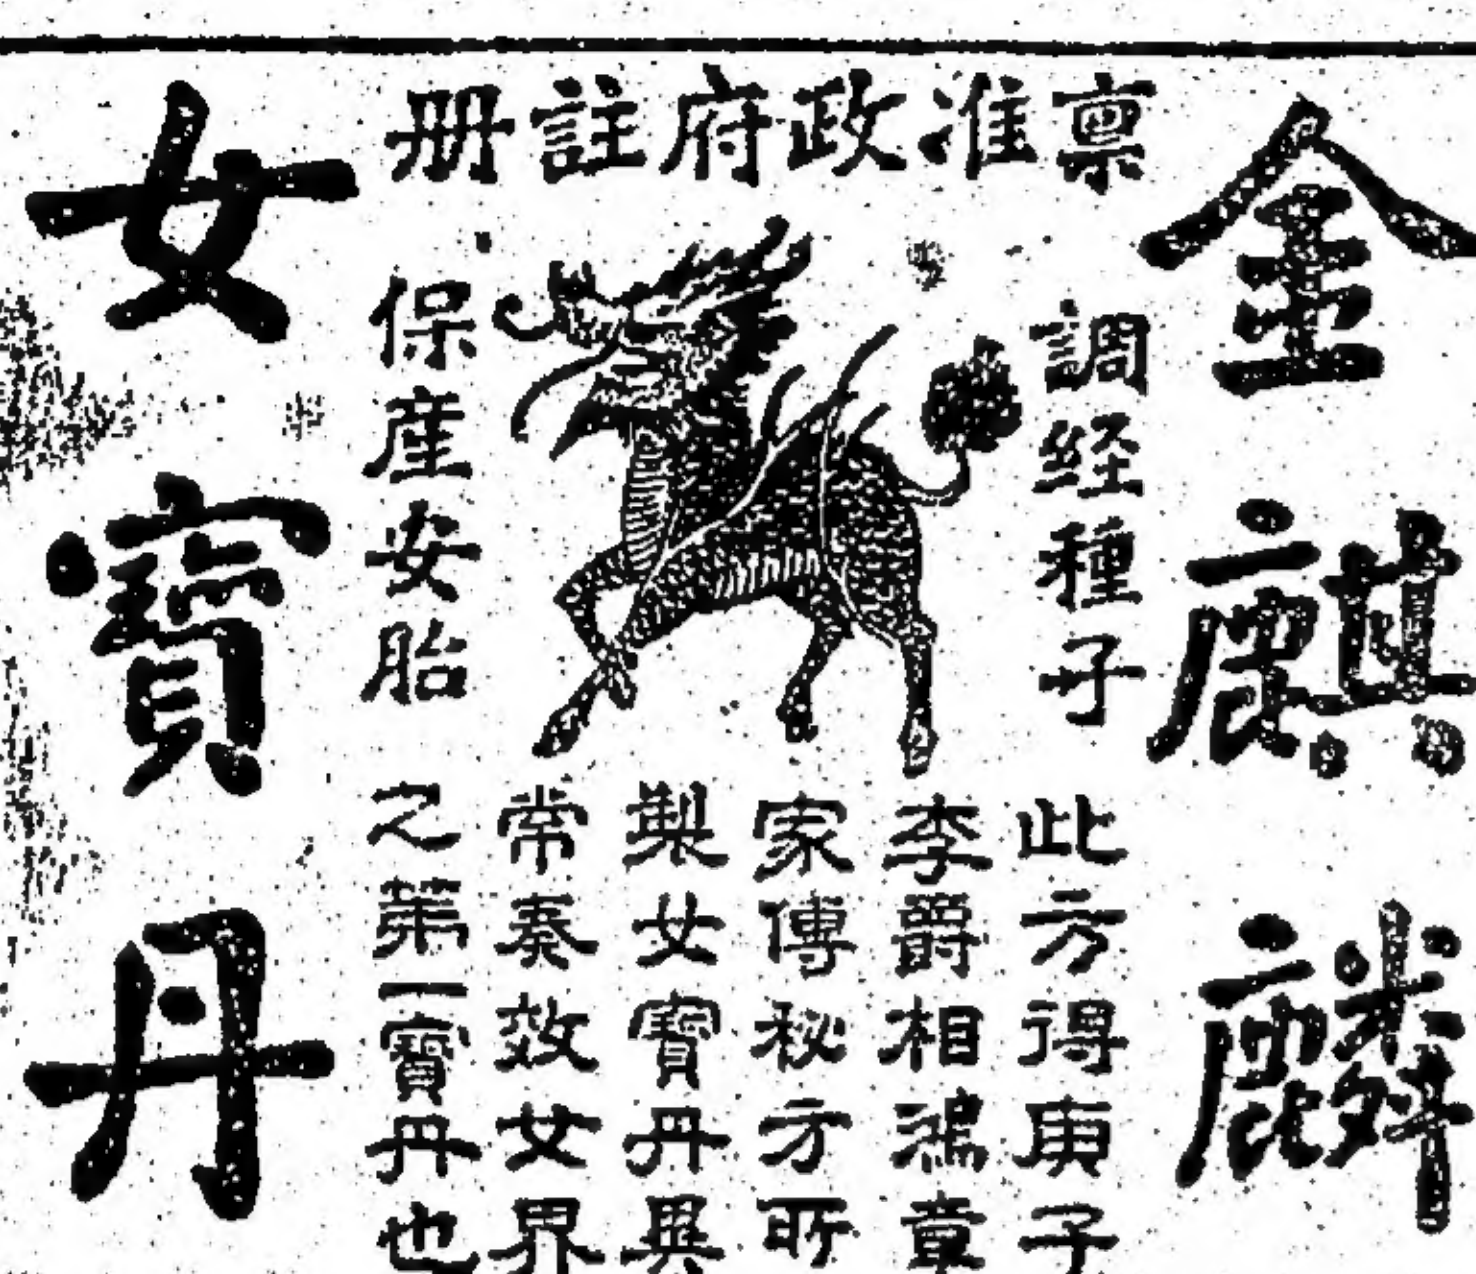 金麒麟
稟准政府註册
調経種子
保產安胎
此方得庚子
李爵相鴻章
家傳秘方所
製女寶丹異
常奏效女界
之第一寶丹也
女寶丹